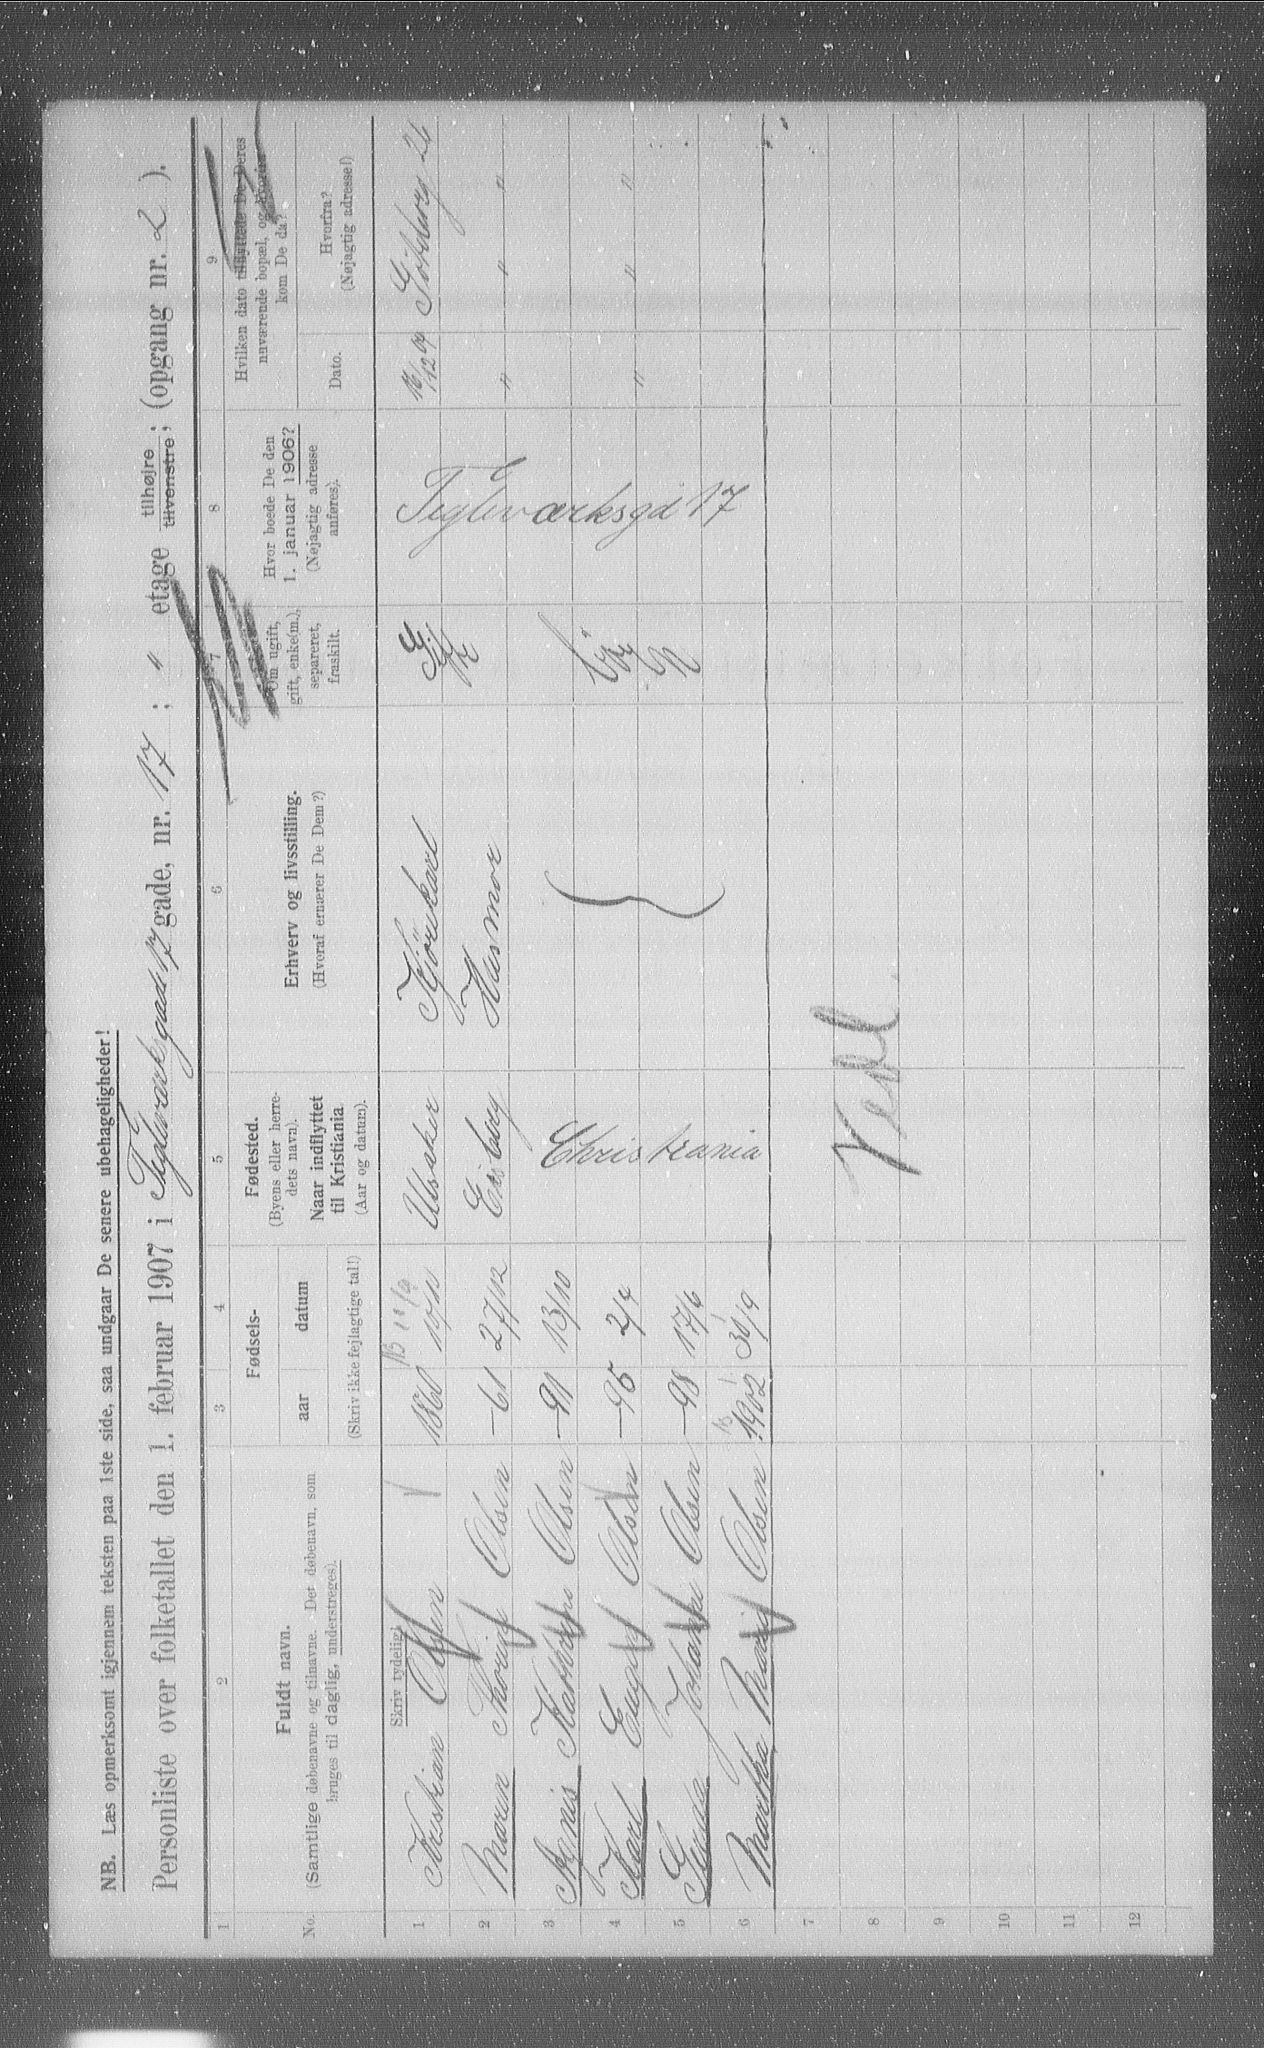 NB. Læs opmerksomt igjennem teksten paa 1ste side, saa undgaar De senere ubehageligheder!
Personliste over folketallet den 1. februar 1907 i Teglværkgad 17 gade, nr. 17 ; " etage tilhøjre tilvenstre ; (opgang nr. 2 ).
1 2 3 4 5 6 7 8 9
No.
Fuldt navn.
(Samtlige døbenavne og tilnavne. Det døbenavn, som
bruges til daglig, understreges).
Skriv tydelig!
Fødsels-
aar datum
(Skriv ikke fejlagtige tal!)
Fødested.
(Byens eller herre-
dets navn).
Naar indflyttet
til Kristiania
(Aar og datum).
Erhverv og livsstilling.
(Hvoraf ernærer De Dem?)
Om ugift,
gift, enke(m.),
separeret,
fraskilt.
Hvor boede De den
1. januar 1906?
(Nøjagtig adresse
anføres).
Hvilken dato tilflyttede De Deres
nuværende bopæl, og hvorfra
kom De da?
Dato.
Hvorfra?
(Nøjagtig adresse!)
1 Kristian Olsen 1860 10/11 Ulsaker Kjörekarl Gift Tegleværksgd 17 16/12 04 26
2 Maren Olsen -61 27/12 Eisberg Husmor " " "
3 Agnis Olsen -91 13/10 Christiania
4 Karl Olsen -95 2/4 " " "
5 Gunda Johanna Olsen -98 17/6
6 Martha Marie Olsen 1902 30/9
7
8
9
10
11
12